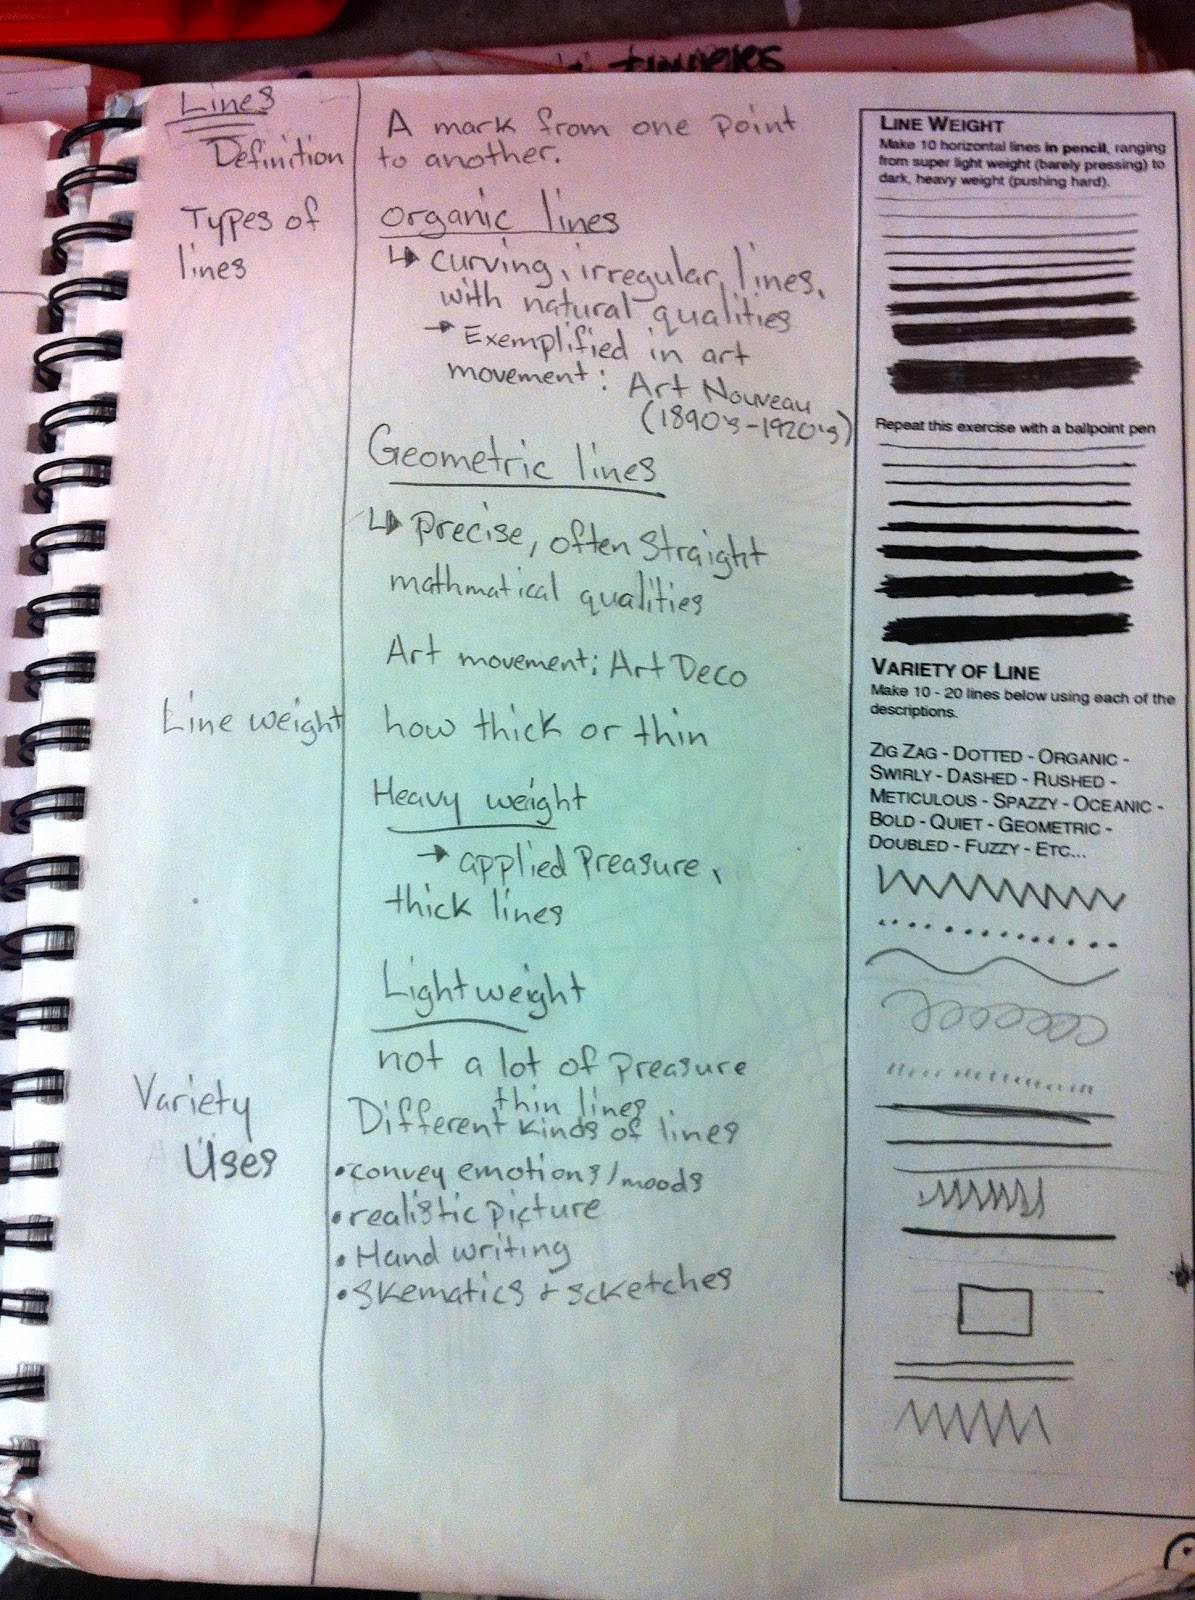 tunners
Lines
Definition
A mark from one point
to another.
Types of
lines
organic lines
curving, irregular, lines,
with natural qualities
Exemplified in art
movement: Art Nouveau
(1890's-1920's)
Geometric lines
Precise, often Straight
mathmatical qualities
Art movement: Art Deco
Line weight
how thick or thin
Heavy weight
applied Preasure,
thick lines
Light weight
not a lot of Preasure
thin lines
Variety
Different kinds of lines
Uses
•convey emotions/moods
•realistic picture
•Hand writing
•Skematics & scketches
LINE WEIGHT
Make 10 horizontal lines in pencil, ranging
from super light weight (barely pressing) to
dark, heavy weight (pushing hard).
Repeat this exercise with a ballpoint pen
VARIETY OF LINE
Make 10 - 20 lines below using each of the
descriptions.
ZIG ZAG - DOTTED - ORGANIC -
SWIRLY - DASHED - RUSHED -
METICULOUS - SPAZZY - OCEANIC -
BOLD - QUIET - GEOMETRIC -
DOUBLED - FUZZY - ETC...